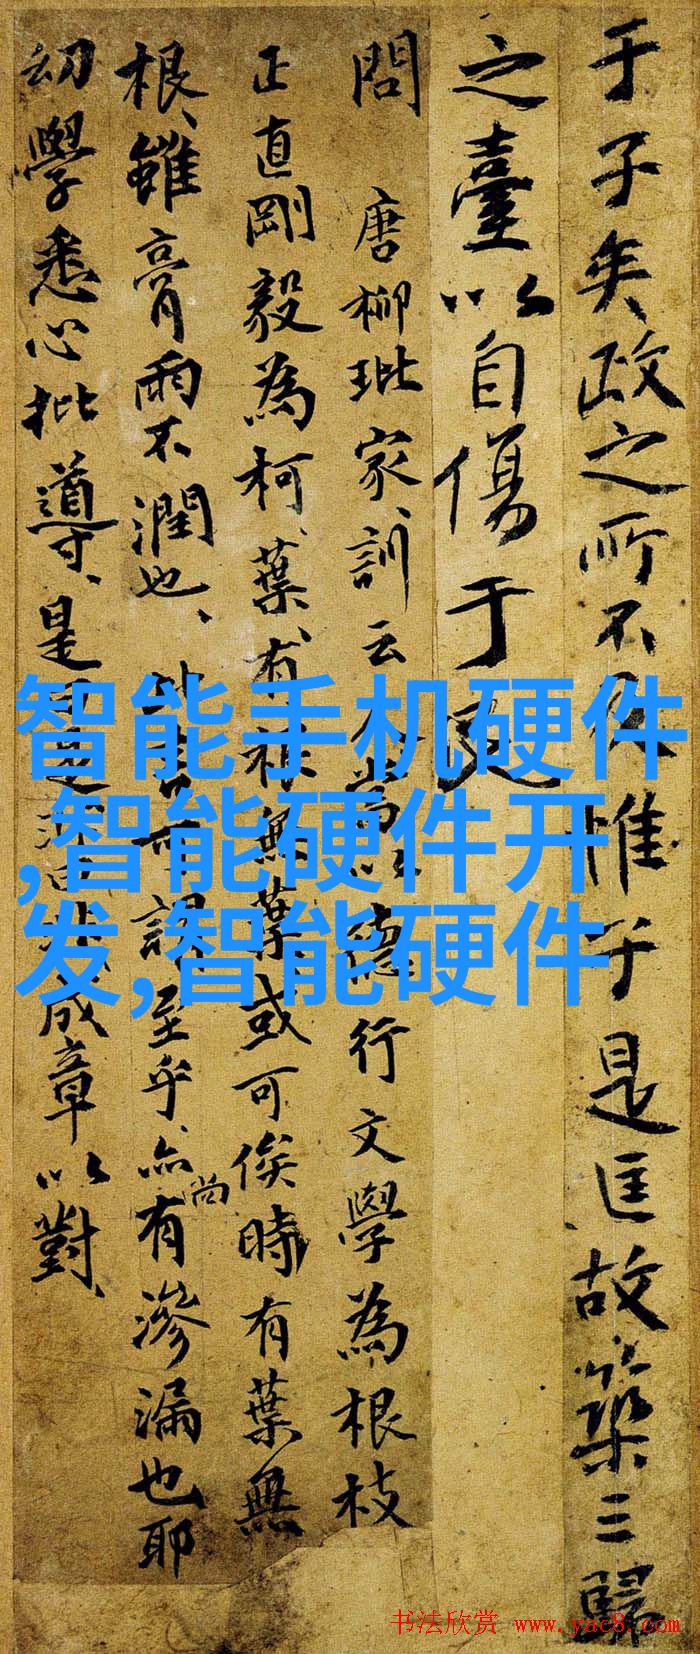 于子矣政之所不及惟于是匡故築三歸
之臺以自傷于民
問 唐柳玭家訓云以德行文學為根枝
正直剛毅為柯葉有根無葉或可俟時有葉無
根雖膏雨不潤也至乎亦尚有滲漏也耶
幼學悉心批導是成章以對
智能手机硬件
,智能硬件开
发,智能硬件
书法欣赏 www.yac8.com